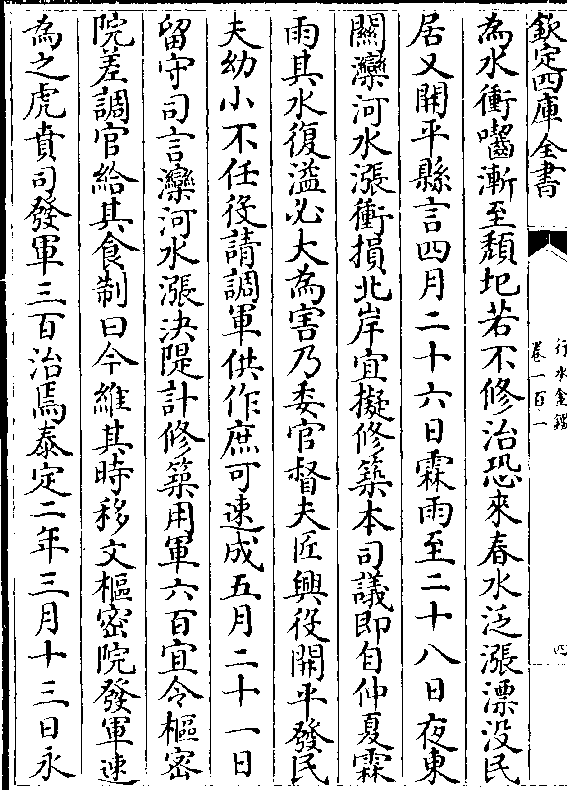 欽定四庫全書
行水金鑑
卷一百一
四
為水衝囓漸至頹圮若不修治恐來春水泛漲漂没民
居又開平縣言四月二十六日霖雨至二十八日夜東
關灤河水漲衝損北岸宜擬修築本司議即自仲夏霖
雨其水復溢必大為害乃委官督夫匠興役開平發民
夫幼小不任役請調軍供作庶可速成五月二十一日
留守司言灤河水漲決隄計修築用軍六百宜令樞密
院差調官給其食制曰今維其時移文樞密院發軍速
為之虎賁司發軍三百治焉泰定二年三月十三日永